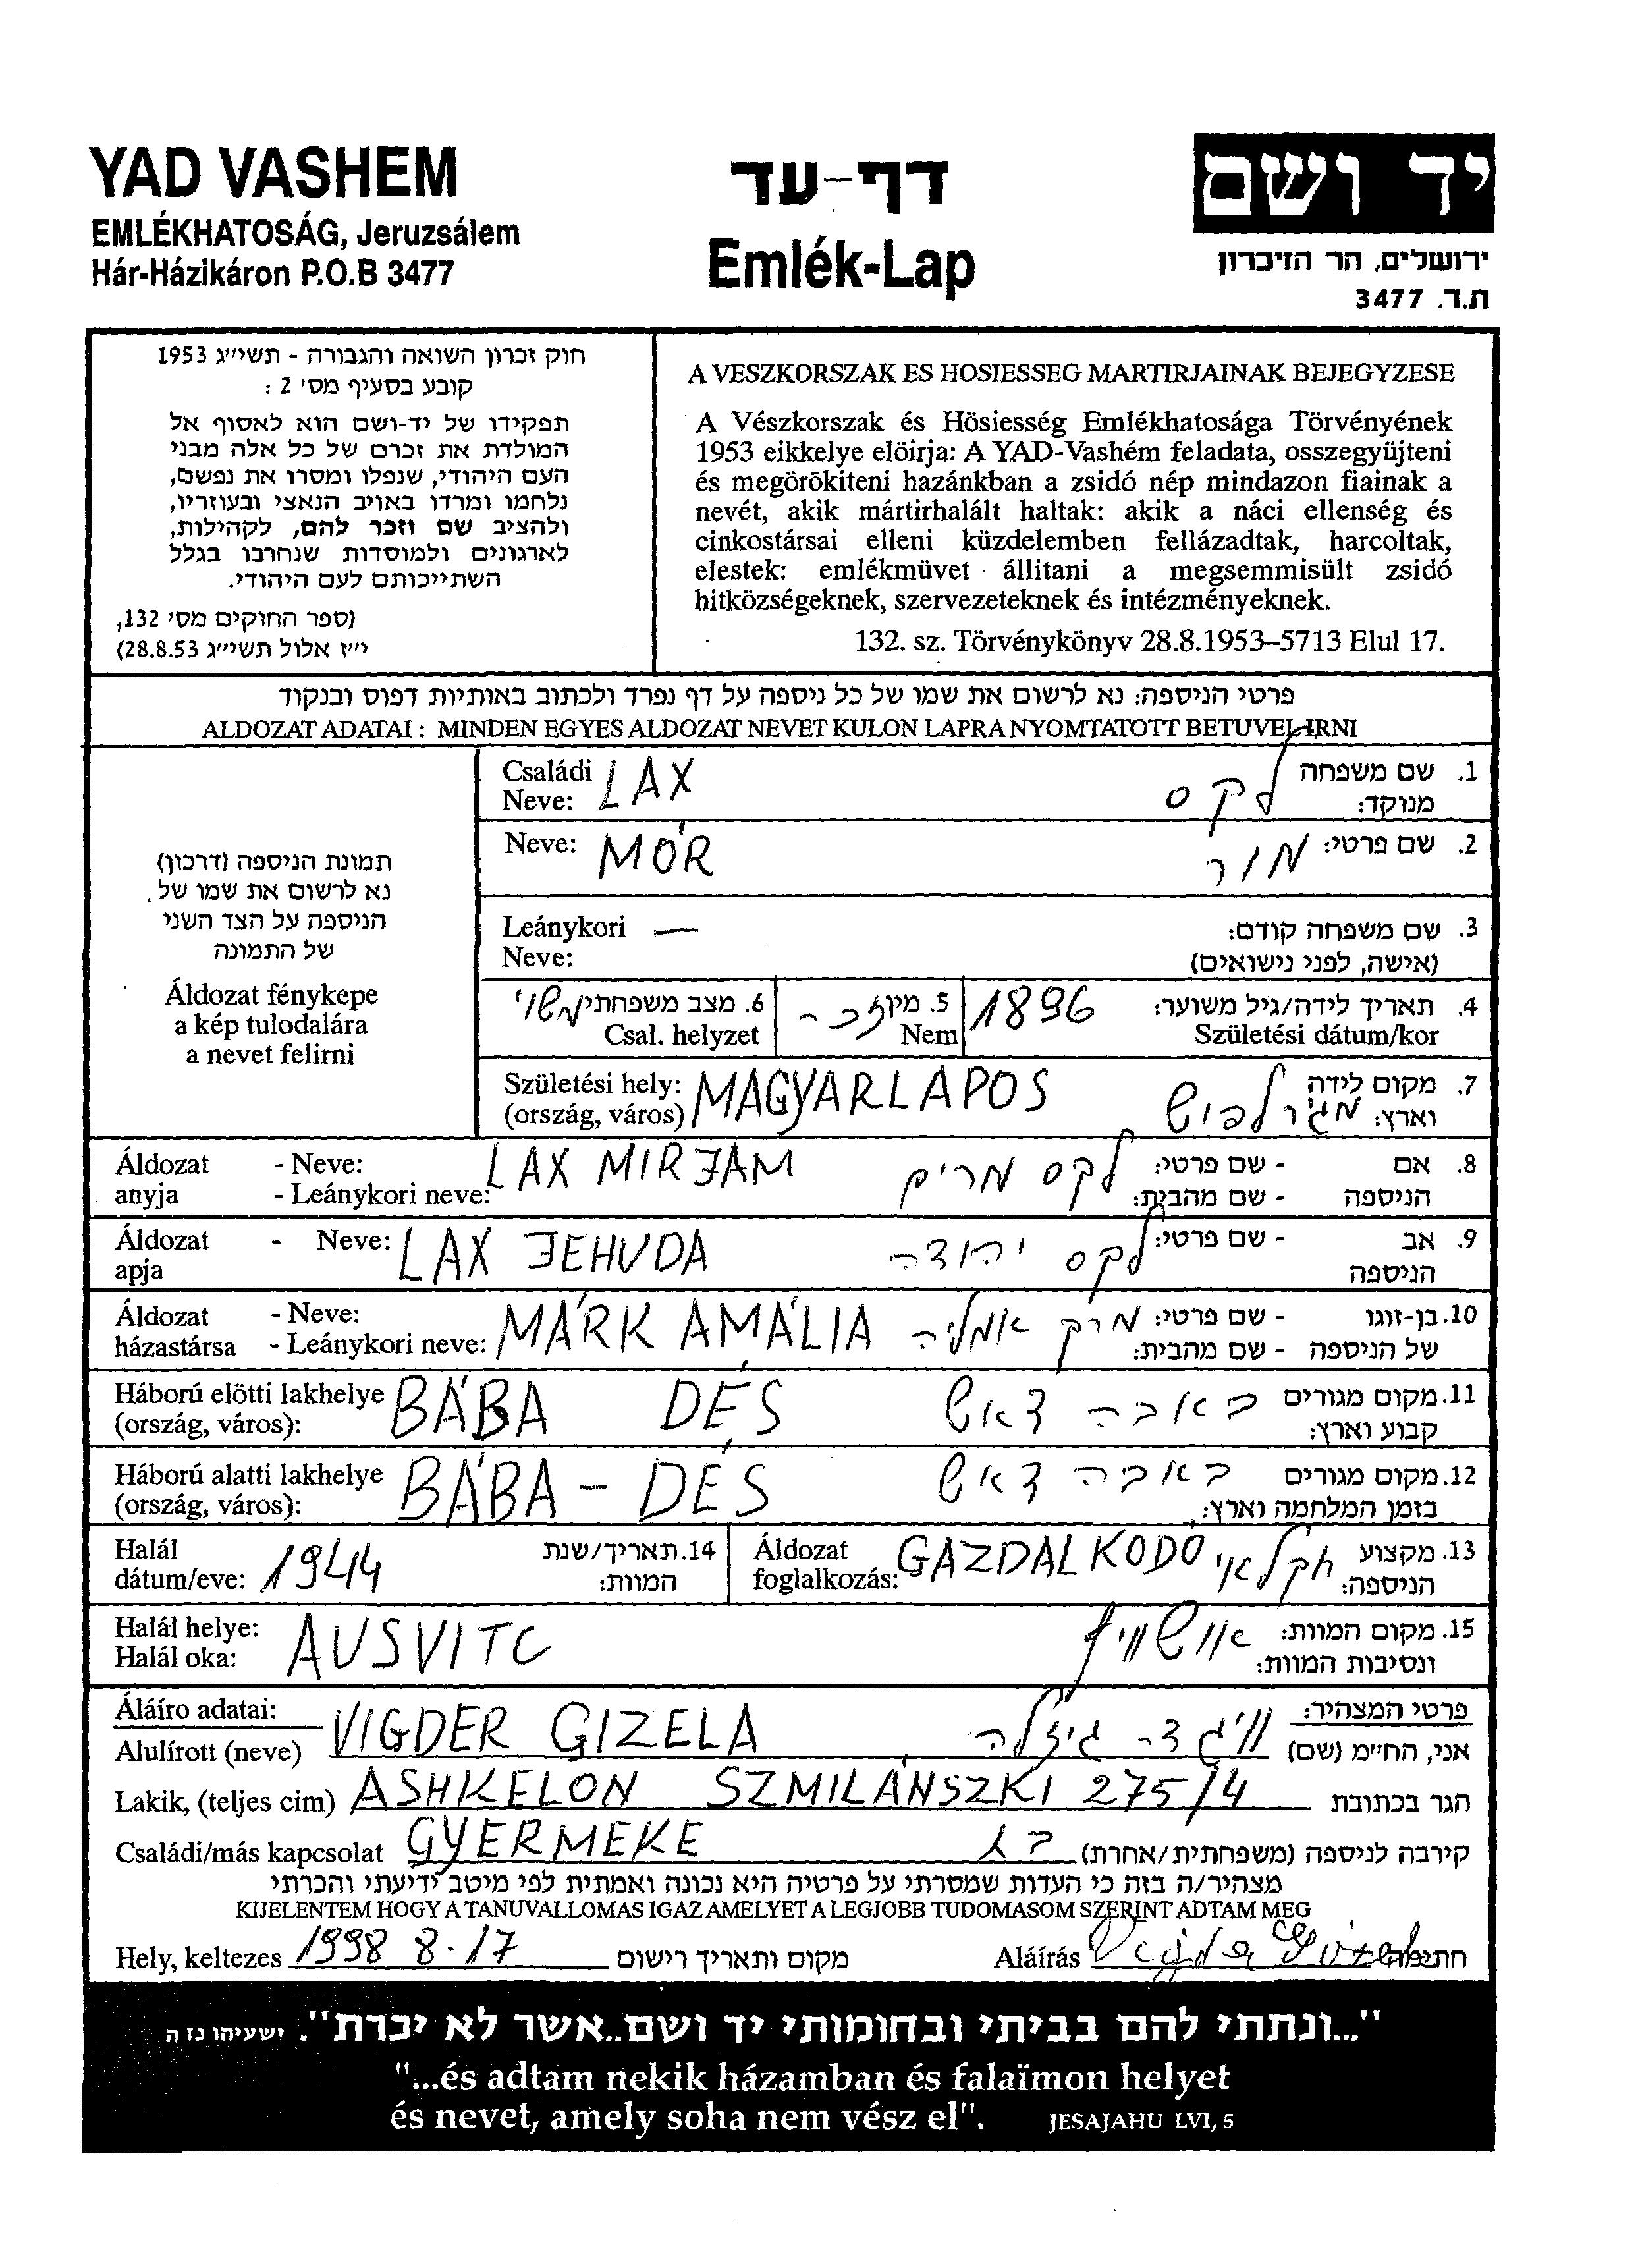 YAD VASHEM
EMLÉKHATOSÁG, Jeruzsálem
Hár-Házikáron P.O.B 3477
דף-עד
Emlék-Lap
יד ושם
ירושלים, הר הזיכרון
ת.ד. 3477
חוק זכרון השואה והגבורה - תשי״ג 1953
קובע בסעיף מס׳ 2 :
תפקידו של יד-ושם הוא לאסוף אל
המולדת את זכרם של כל אלה מבני
העם היהודי, שנפלו ומסרו את נפשם,
נלחמו ומרדו באויב הנאצי ובעוזריו,
ולהציב שם וזכר להם, לקהילות,
לארגונים ולמוסדות שנחרבו בגלל
השתייכותם לעם היהודי.
(ספר החוקים מס׳ 132,
י״ז אלול תשי״ג 28.8.53)
A VESZKORSZAK ES HOSIESSEG MARTIRJAINAK BEJEGYZESE
A Vészkorszak és Hösiesség Emlékhatosága Törvényének
1953 eikkelye elöirja: A YAD-Vashém feladata, osszegyüjteni
és megörökiteni hazánkban a zsidó nép mindazon fiainak a
nevét, akik mártirhalált haltak: akik a náci ellenség és
cinkostársai elleni küzdelemben fellázadtak, harcoltak,
elestek: emlékmüvet állitani a megsemmisült zsidó
hitközségeknek, szervezeteknek és intézményeknek.
132. sz. Törvénykönyv 28.8.1953–5713 Elul 17.
פרטי הניספה: נא לרשום את שמו של כל ניספה על דף נפרד ולכתוב באותיות דפוס ובנקוד
ALDOZAT ADATAI : MINDEN EGYES ALDOZAT NEVET KULON LAPRA NYOMTATOTT BETUVEL IRNI
תמונת הניספה (דרכון)
נא לרשום את שמו של
הניספה על הצד השני
של התמונה
Áldozat fénykepe
a kép tulodalára
a nevet felirni
Családi
Neve: LAX
1. שם משפחה
מנוקד: לקס
Neve: MÓR
2. שם פרטי: מור
Leánykori —
Neve:
3. שם משפחה קודם:
(אישה, לפני נישואים)
4. תאריך לידה/גיל משוער: 1896
Születési dátum/kor
5. מין זכר
Nem
6. מצב משפחתי נשוי
Csal. helyzet
Születési hely: MAGYARLAPOS
(ország, város)
7. מקום לידה
וארץ: מגירלפוש
Áldozat - Neve: LAX MIRJAM
anyja - Leánykori neve:
8. אם - שם פרטי: לקס מרים
הניספה - שם מהבית:
Áldozat - Neve: LAX JEHUDA
apja
9. אב - שם פרטי: לקס יהודה
הניספה
Áldozat - Neve: MÁRK AMÁLIA
házastársa - Leánykori neve:
10. בן-זוגו - שם פרטי: מרק אמליה
של הניספה - שם מהבית:
Háború elötti lakhelye BÁBA DÉS
(ország, város):
11. מקום מגורים באבה דאש
קבוע וארץ:
Háború alatti lakhelye BÁBA - DÉS
(ország, város):
12. מקום מגורים באבה דאש
בזמן המלחמה וארץ:
Halál
dátum/eve: 1944
14. תאריך/שנת
המוות:
Áldozat GAZDALKODÓ
foglalkozás:
13. מקצוע חקלאי
הניספה:
Halál helye: AUSVITC
Halál oka:
15. מקום המוות: אוושוויץ
ונסיבות המוות:
Áláíro adatai:
פרטי המצהיר:
Alulírott (neve) VIGDER GIZELA
אני, החי״מ (שם) וויגדר גיזלה
Lakik, (teljes cim) ASHKELON SZMILÁNSZKI 275/4 הגר בכתובת
Családi/más kapcsolat GYERMEKE
קירבה לניספה (משפחתית/אחרת) בת
מצהיר/ה בזה כי העדות שמסרתי על פרטיה היא נכונה ואמתית לפי מיטב ידיעתי והכרתי
KIJELENTEM HOGY A TANUVALLOMAS IGAZ AMELYET A LEGJOBB TUDOMASOM SZERINT ADTAM MEG
Hely, keltezes 1998 8.17 מקום ותאריך רישום
Aláírás Vigder Gizela חתימה
"...ונתתי להם בביתי ובחומותי יד ושם..אשר לא יכרת". ישעיהו נז ה
"...és adtam nekik házamban és falaïmon helyet
és nevet, amely soha nem vész el". JESAJAHU LVI, 5